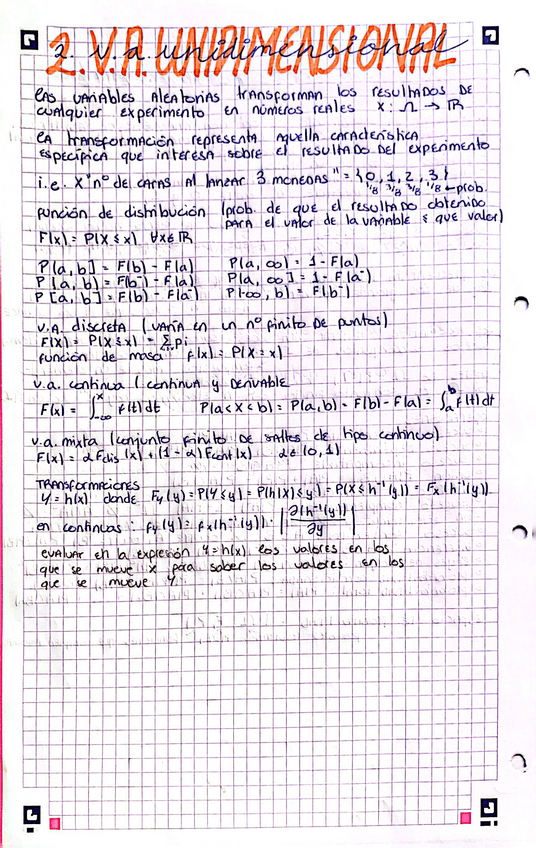 2. V.A. UNIDIMENSIONAL
2. v.a. unidimensional
las variables aleatorias transforman los resultados de
cualquier experimento en números reales X: Ω → ℝ
la transformación representa aquella característica
específica que interesa sobre el resultado del experimento
i.e. X "nº de caras al lanzar 3 monedas" = {0, 1, 2, 3}
1/8 3/8 3/8 1/8 ← prob.
función de distribución (prob. de que el resultado obtenido
para el valor de la variable ≤ que valor)
F(x) = P(X ≤ x) ∀x∈ℝ
P(a, b] = F(b) - F(a) P(a, ∞) = 1 - F(a)
P(a, b) = F(b⁻) - F(a) P[a, ∞] = 1 - F(a⁻)
P[a, b] = F(b) - F(a⁻) P(-∞, b) = F(b⁻)
v.a. discreta (varía en un nº finito de puntos)
F(x) = P(X ≤ x) = Σ pi
función de masa f(x) = P(X = x)
v.a. continua (continua y derivable
F(x) = ∫_{-∞}^{x} f(t)dt P(a < X < b) = P(a, b) = F(b) - F(a) = ∫_a^b f(t)dt
v.a. mixta (conjunto finito de saltos de tipo continuo)
F(x) = α Fdis (x) + (1 - α) Fcont (x) α∈(0, 1)
Transformaciones
Y = h(x) donde F_Y(y) = P(Y ≤ y) = P(h(X) ≤ y) = P(X ≤ h⁻¹(y)) = F_X(h⁻¹(y))
en continuas: f_Y(y) = f_X(h⁻¹(y)) · |∂(h⁻¹(y))/∂y|
evaluar en la expresión Y = h(x) los valores en los
que se mueve X para saber los valores en los
que se mueve Y